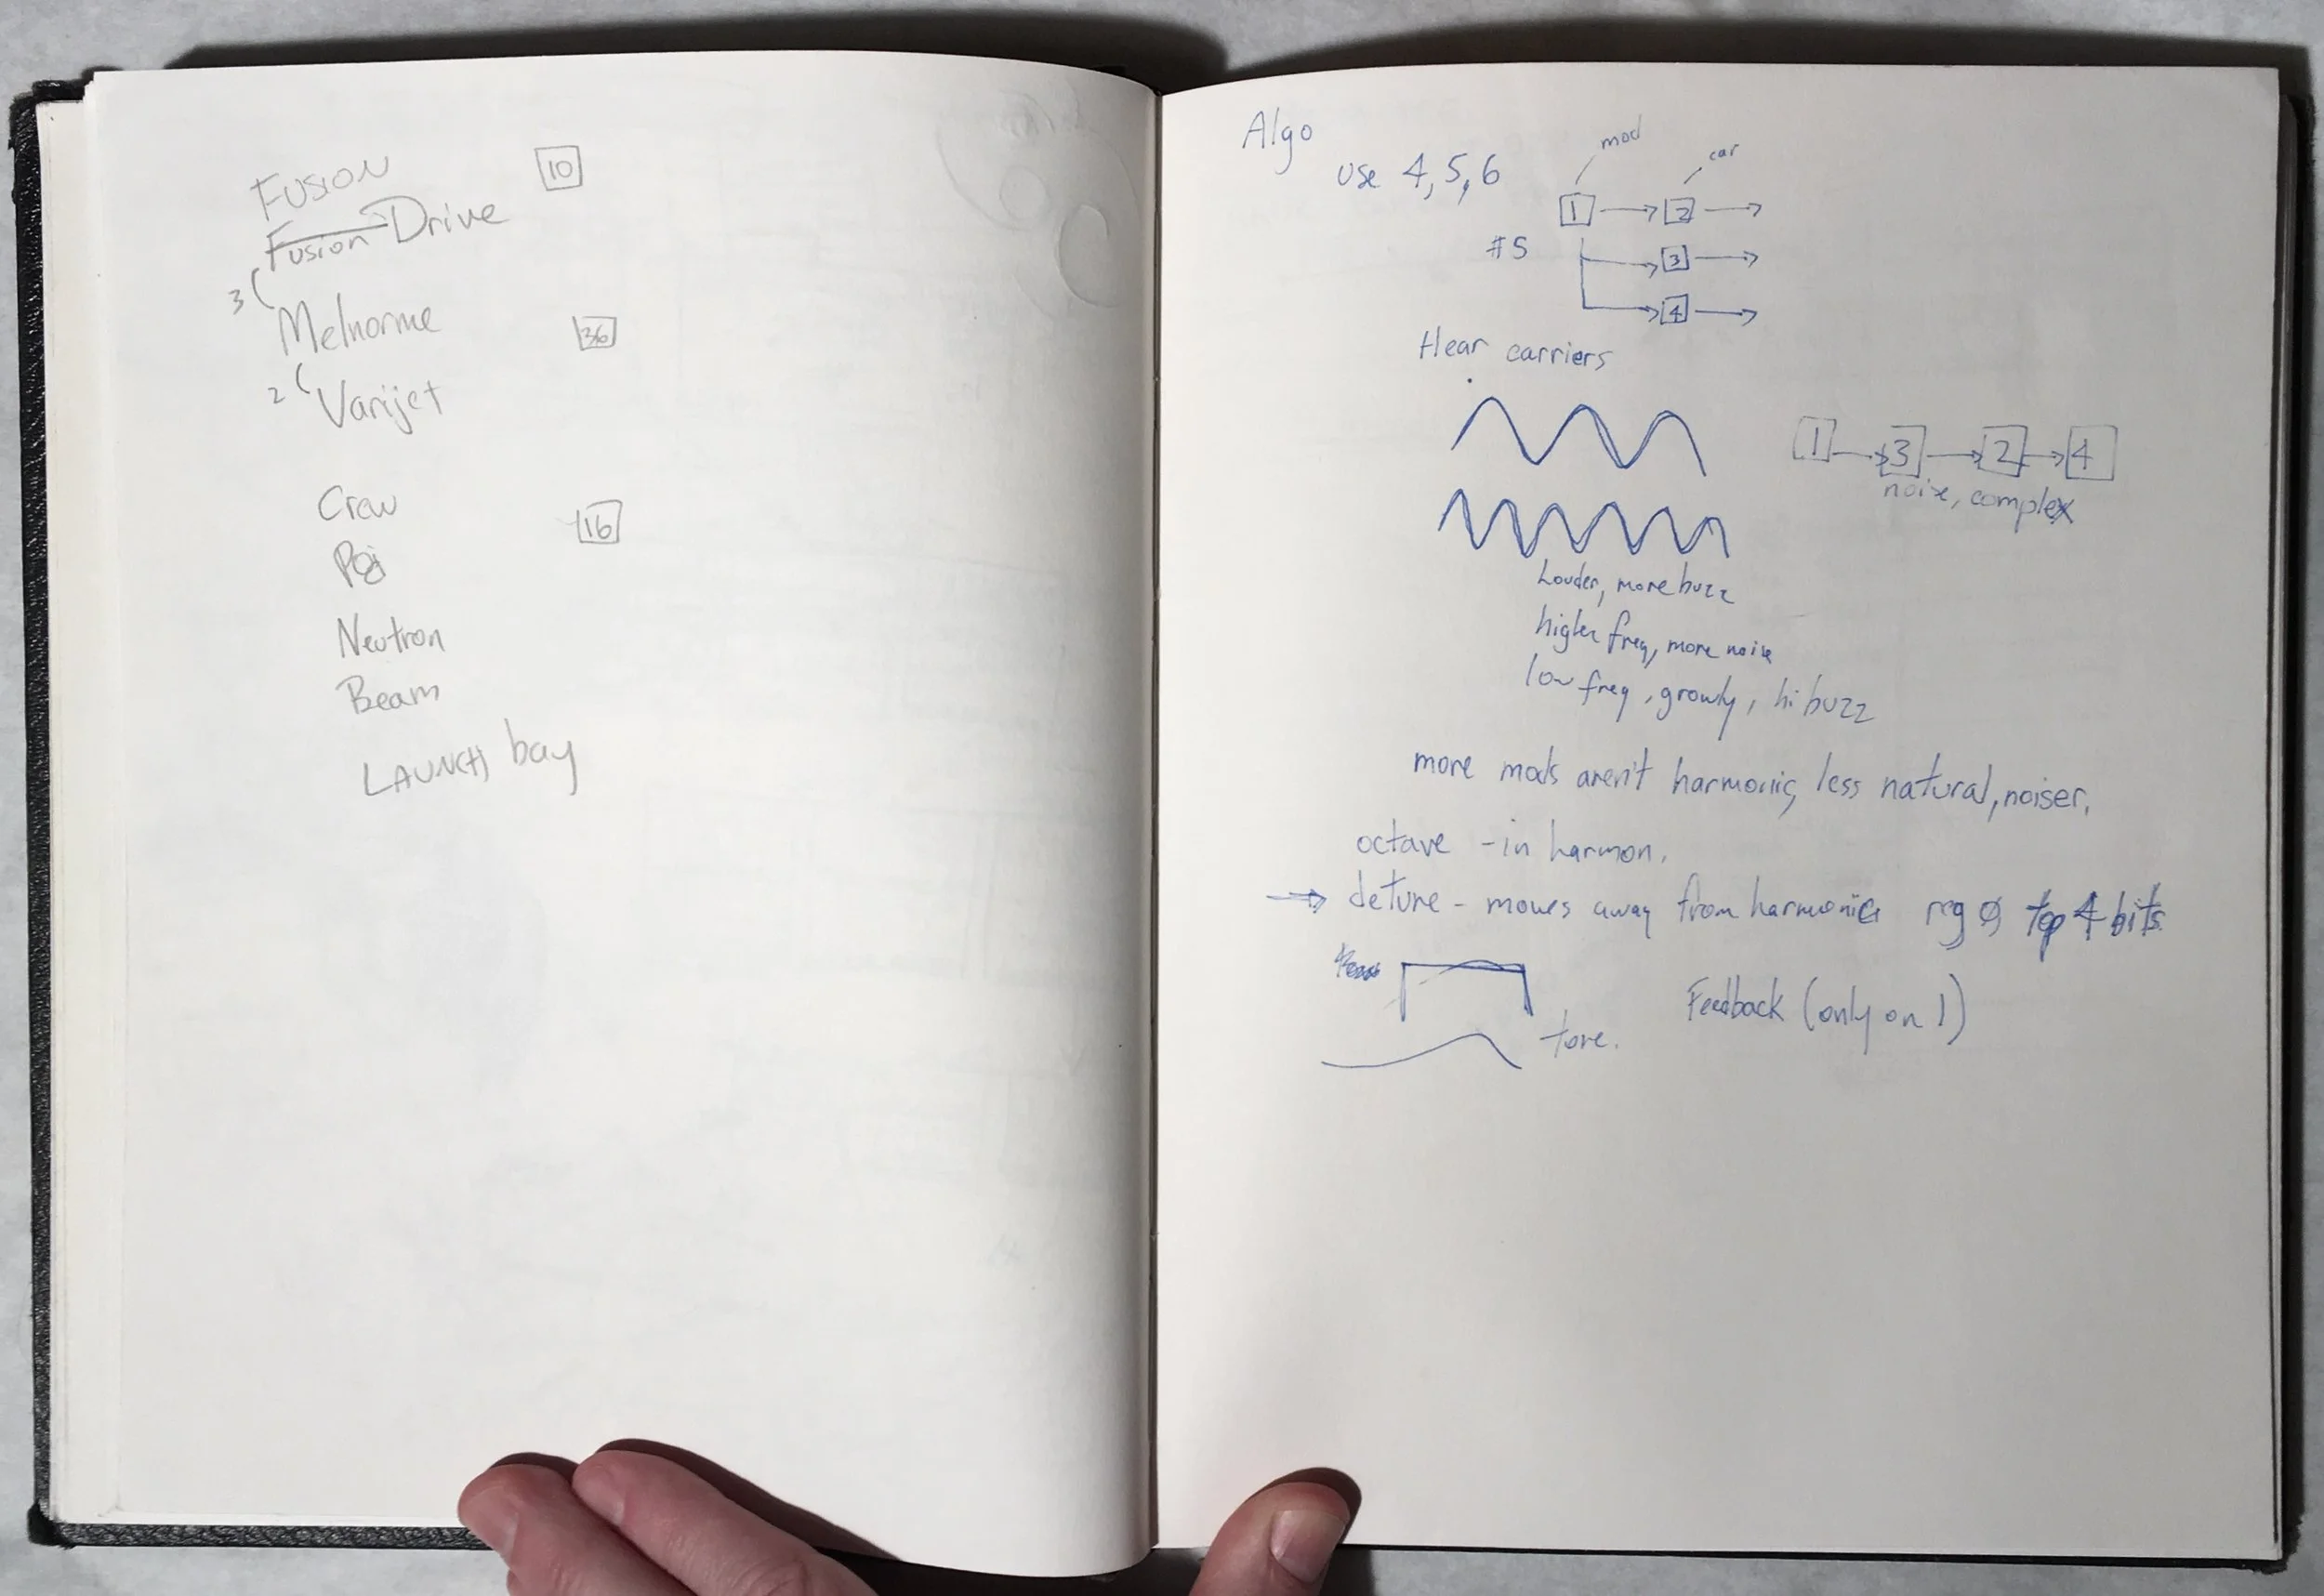 FUSION
10
Fusion Drive
3
Melnorme
36
2
Varijet
Crew
16
Neutron
Beam
LAUNCH bay
Algo
mod
car
Use 4, 5, 6
1 2
#5
3
4
Hear carriers
1 3 2 4
noise, complex
Louder, more buzz
higher freq, more noise
low freq, growly, hi buzz
more mods aren't harmonic, less natural, noiser.
octave - in harmon.
detune - moves away from harmonic reg 0 top 4 bits
Feedback (only on 1)
tone.